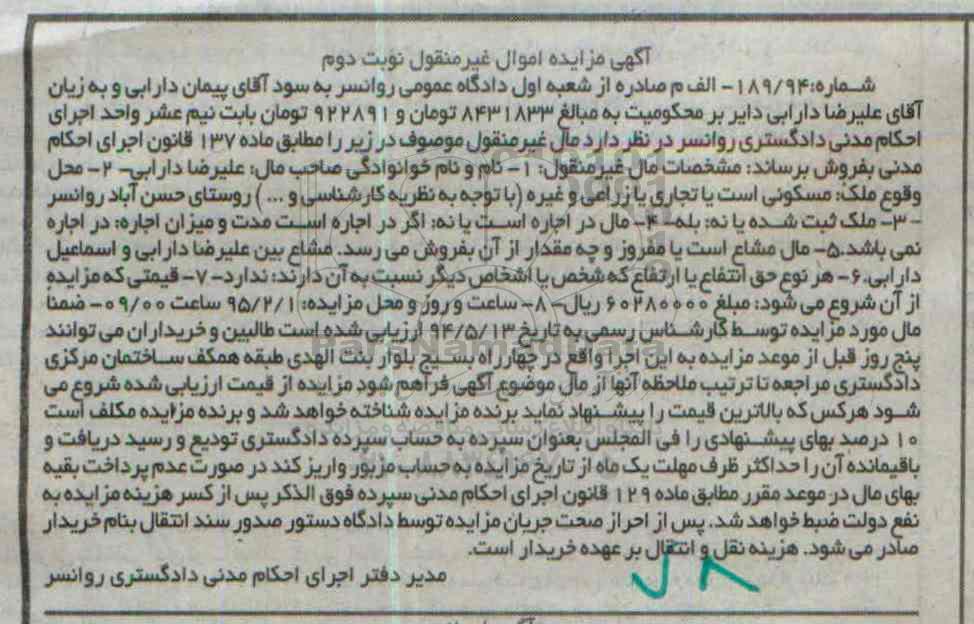 آگهی مزایده اموال غیرمنقول نوبت دوم
شماره:۱۸۹/۹۴- الف م صادره از شعبه اول دادگاه عمومی روانسر به سود آقای پیمان دارابی و به زیان
آقای علیرضا دارابی دایر بر محکومیت به مبالغ ۸۴۳۱۸۳۳ تومان و ۹۲۲۸۹۱ تومان بابت نیم عشر واحد اجرای
احکام مدنی دادگستری روانسر در نظر دارد مال غیرمنقول موصوف در زیر را مطابق ماده ۱۳۷ قانون اجرای احکام
مدنی بفروش برساند: مشخصات مال غیرمنقول: ۱- نام و نام خوانوادگی صاحب مال: علیرضا دارابی- ۲- محل
وقوع ملک: مسکونی است یا تجاری یا زراعی و غیره (با توجه به نظریه کارشناسی و ...) روستای حسن آباد روانسر
- ۳- ملک ثبت شده یا نه: بله- ۴- مال در اجاره است یا نه: اگر در اجاره است مدت و میزان اجاره: در اجاره
نمی باشد.۵- مال مشاع است یا مفروز و چه مقدار از آن بفروش می رسد. مشاع بین علیرضا دارابی و اسماعیل
دارابی.۶- هر نوع حق انتفاع یا ارتفاع که شخص یا اشخاص دیگر نسبت به آن دارند: ندارد- ۷- قیمتی که مزایده
از آن شروع می شود: مبلغ ۶۰۲۸۰۰۰۰ ریال- ۸- ساعت و روز و محل مزایده: ۹۵/۲/۱ ساعت ۰۹/۰۰- ضمنا
مال مورد مزایده توسط کارشناس رسمی به تاریخ ۹۴/۵/۱۳ ارزیابی شده است طالبین و خریداران می توانند
پنج روز قبل از موعد مزایده به این اجرا واقع در چهارراه بسیج بلوار بنت الهدی طبقه همکف ساختمان مرکزی
دادگستری مراجعه تا ترتیب ملاحظه آنها از مال موضوع آگهی فراهم شود مزایده از قیمت ارزیابی شده شروع می
شود هرکس که بالاترین قیمت را پیشنهاد نماید برنده مزایده شناخته خواهد شد و برنده مزایده مکلف است
۱۰ درصد بهای پیشنهادی را فی المجلس بعنوان سپرده به حساب سپرده دادگستری تودیع و رسید دریافت و
باقیمانده آن را حداکثر ظرف مهلت یک ماه از تاریخ مزایده به حساب مزبور واریز کند در صورت عدم پرداخت بقیه
بهای مال در موعد مقرر مطابق ماده ۱۲۹ قانون اجرای احکام مدنی سپرده فوق الذکر پس از کسر هزینه مزایده به
نفع دولت ضبط خواهد شد. پس از احراز صحت جریان مزایده توسط دادگاه دستور صدور سند انتقال بنام خریدار
صادر می شود. هزینه نقل و انتقال بر عهده خریدار است.
مدیر دفتر اجرای احکام مدنی دادگستری روانسر
۷۸